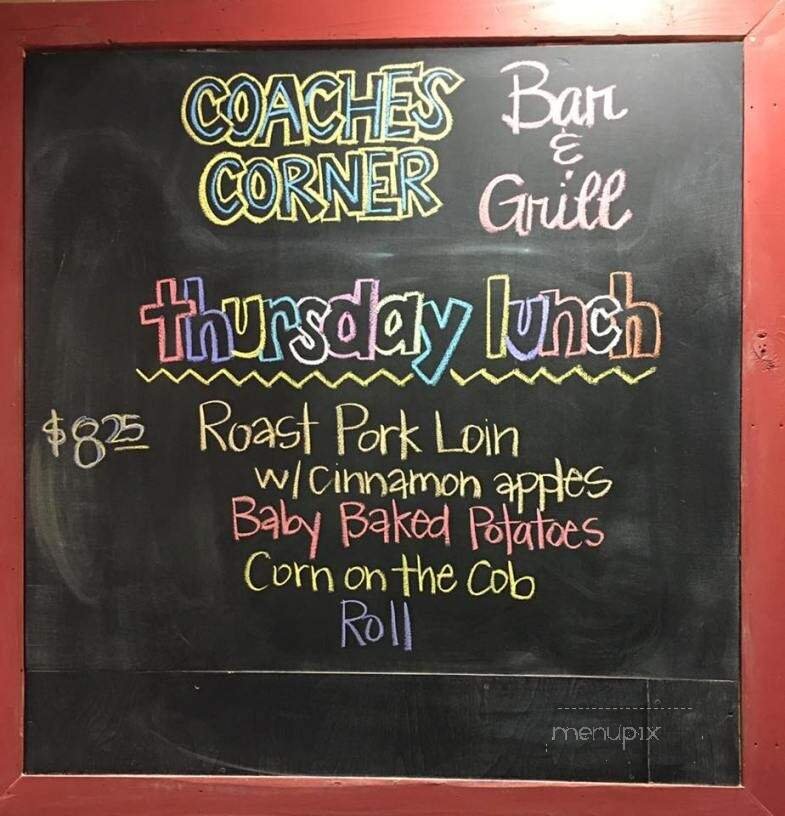 COACHES Bar
&
CORNER Grill
thursday lunch
$8.25 Roast Pork Loin
w/cinnamon apples
Baby Baked Potatoes
Corn on the Cob
Roll
menupix